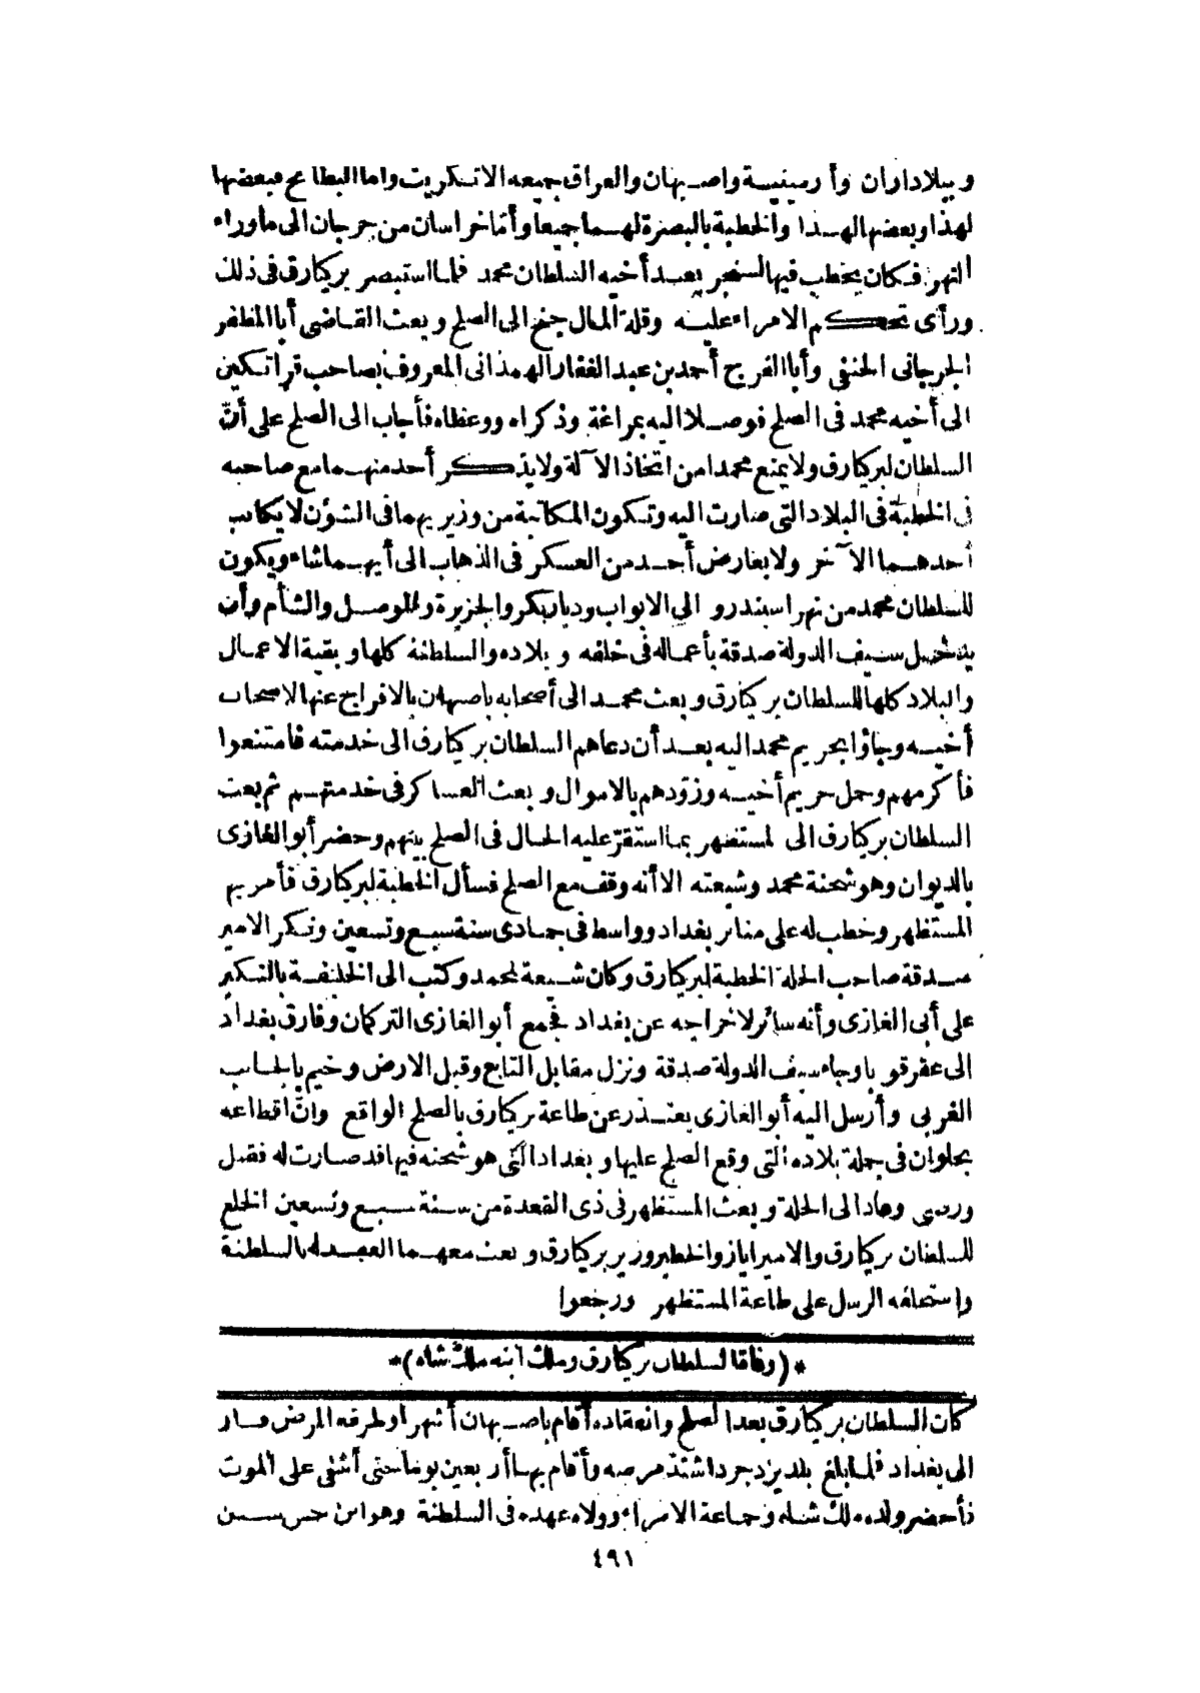 و ببلاد اران وأرمينية واصبهان والعراق جميعه الا تكريت واما البطائح فبعضها
لهذا وبعضها لهذا والخطبة بالبصرة لهما جميعا وأما خراسان من جرجان الى ما وراء
النهر فكان يخطب فيها لسنجر بعد أخيه السلطان محمد فلما استبصر بركيارق فى ذلك
ورأى تحكم الامراء عليه وقلة المال جنح الى الصلح وبعث القاضى أبا المظفر
الجرجانى الحنفى وأبا الفرج أحمد بن عبد الغفار الهمذانى المعروف بصاحب قراتكين
الى أخيه محمد فى الصلح فوصلا اليه بمراغة وذكراه ووعظاه فأجاب الى الصلح على أن
السلطان لبركيارق ولا يمنع محمدا من اتخاذ الآلة ولا يذكر أحد منهما مع صاحبه
فى الخطبة فى البلاد التى صارت اليه وتكون المكاتبة من وزيريهما فى الشؤن لا يكاتب
أحدهما الآخر ولا يعارض أحد من العسكر فى الذهاب الى أيهما شاء ويكون
للسلطان محمد من نهر اسبندرو الى الابواب وديار بكر والجزيرة والموصل والشأم وأن
يدخل سيف الدولة صدقة بأعماله فى خلفه و بلاده والسلطنة كلها و بقية الاعمال
والبلاد كلها للسلطان بركيارق وبعث محمد الى أصحابه باصبهان بالافراج عنها لاصحاب
أخيه وجاؤا بحريم محمد اليه بعد أن دعاهم السلطان بركيارق الى خدمته فامتنعوا
فأكرمهم وحمل حريم أخيه وزودهم بالاموال وبعث العساكر فى خدمتهم ثم بعث
السلطان بركيارق الى لمستضهر بما استقر عليه الحال فى الصلح بينهم وحضر أبو الغازى
بالديوان وهو شحنة محمد وشيعته الا أنه وقف مع الصلح فسأل الخطبة لبركيارق فأمر بهم
المستظهر وخطب له على منابر بغداد وواسط فى جمادى سنة سبع وتسعين ونكر الامير
صدقة صاحب الحلة الخطبة لبركيارق وكان شيعة لمحمد وكتب الى الخليفة بالنكير
على أبى الغازى وأنه سائر لاخراجه عن بغداد فجمع أبو الغازى التركمان وفارق بغداد
الى عقرقو با وجاء سيف الدولة صدقة ونزل مقابل التابع وقبل الارض وخيم بالجانب
الغربى وأرسل اليه أبو الغازى يعتذر عن طاعة بركيارق بالصلح الواقع وان اقطاعه
بحلوان فى جملة بلاده التى وقع الصلح عليها و بغداد التى هو شحنه فيها قد صارت له فقبل
ورضى وعاد الى الحلة وبعث المستظهر فى ذى القعدة من سنة سبع وتسعين الخلع
للسلطان بركيارق والامير اياز والخطير وزير بركيارق وبعث معهما العهد له بالسلطنة
واستحلفه الرسل على طاعة المستظهر ورجعوا
* (وفاة السلطان بركيارق وملك ابنه ملك شاه) *
كان السلطان بركيارق بعد الصلح وانعقاده أقام باصبهان أشهرا وطرقه المرض فسار
الى بغداد فلما بلغ بلد يزدجرد اشتد مرضه وأقام بها أربعين يوما حتى أشفى على الموت
فأحضر ولده ملك شاه وجماعة الامراء وولاه عهده فى السلطنة وهو ابن خمس سنين
٤٩١